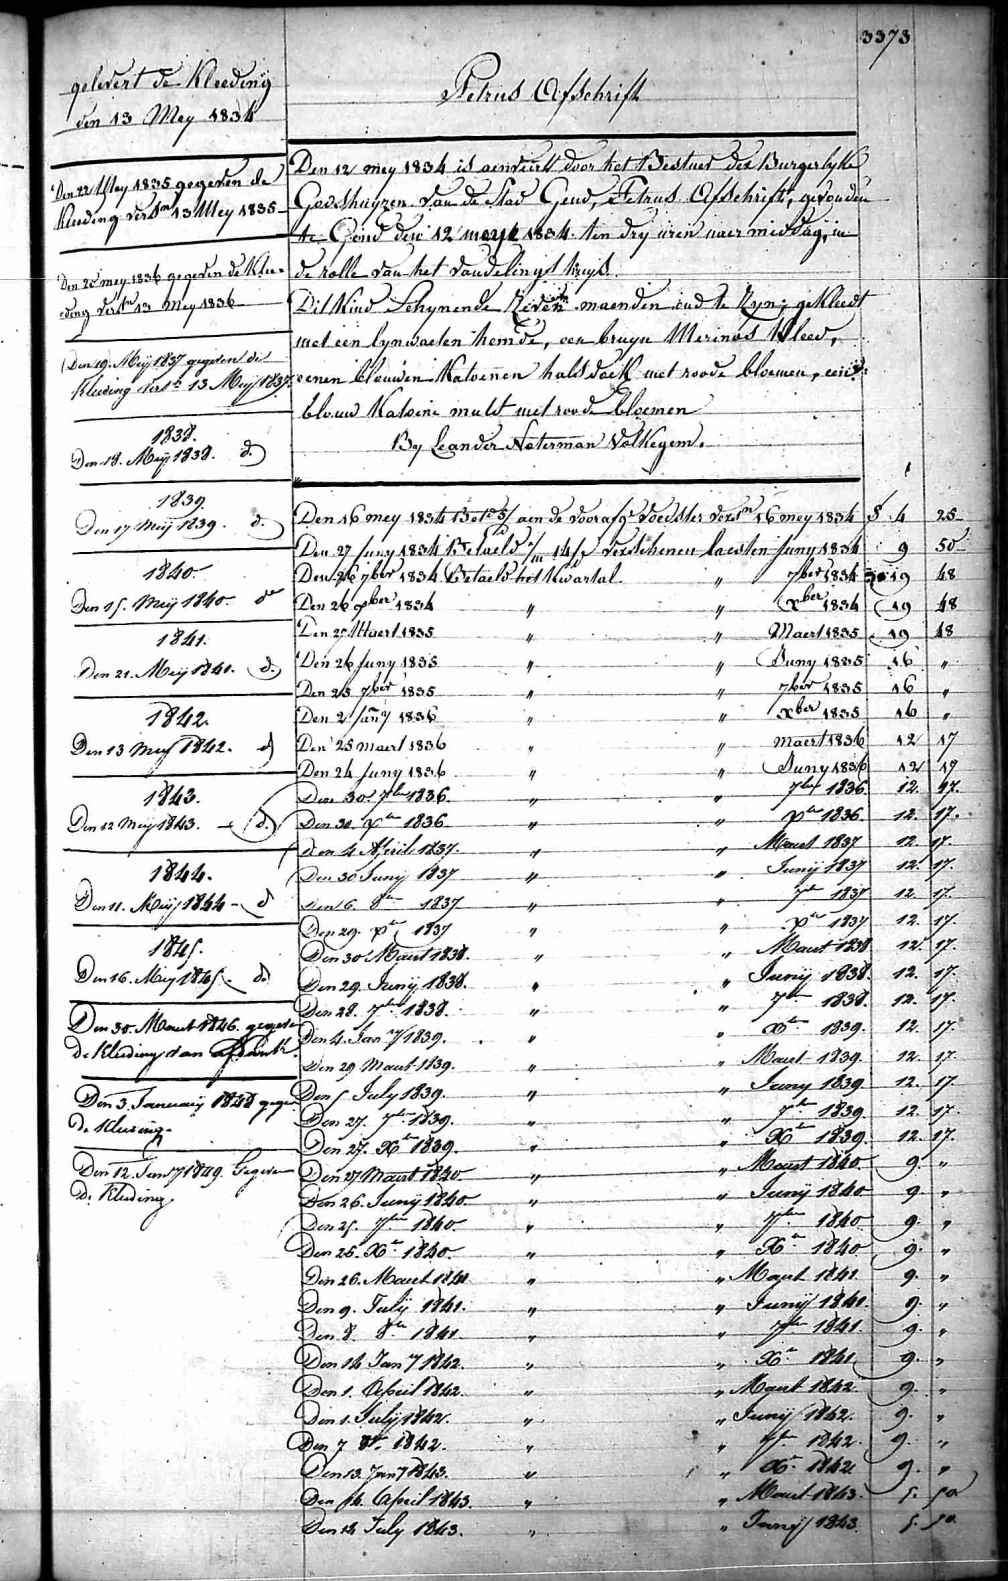 3373
gelevert de Kleeding
den 13 Mey 1834
Den 22 Mey 1835 gegeven de
Kleeding verst 13 Mey 1835
Den 25 mey 1836 gegeven de Klee-
ding verst 13 Mey 1836
Den 19. Meij 1837 gegeven de
Kleeding verst 13 Meij 1837.
1838.
Den 18. Meij 1838. d.
1839.
Den 17 Meij 1839. d.
1840.
Den 15. Meij 1840. do
1841.
Den 21. Meij 1841. d.
1842.
Den 13 Meij 1842. d
1843.
Den 12 Meij 1843. d.
1844.
Den 11. Meij 1844 - d
1845.
Den 16. Meij 1845. do
Den 30. Maart 1846. gegeven
de Kleeding
Den 3. January 1848 gegeven
de Kleeding
Den 12. Jany 1849. Gegeven
de Kleeding.
Petrus Afschrift
Den 12 mey 1834 is aenveert door het Bestuer der Burgerlyke
Godshuyzen van de Stad Gend, Petrus Afschrift, gevonden
te Gend den 12 meye 1834 ten dry uren naer middag, in
de rolle van het vondelingshuys.
Dit Kind schynende zeven maenden oud te zyn; gekleedt
met een lynwaeten hemde, een bruyn Merinos Kleed,
eenen blauwen Katoenen halsdoek met roode bloemen, eene
blauw Katoene muts met roode bloemen
By Leander Neterman Volkegem.
Den 16 mey 1834 Bet aen de voorafge voedster verst 16 mey 1834 f 4 25
Den 27 Juny 1834 Betaeld verschenen laesten Juny 1834 9 50
Den 26 7ber 1834 Betaeld het Kwartal " 7ber 1834 19 48
Den 26 xber 1834 " " Xber 1834 19 48
Den 27 Maert 1835 " " Maert 1835 19 48
Den 26 Juny 1835 " " Juny 1835 16 "
Den 25 7ber 1835 " " 7ber 1835 16 "
Den 2 Jany 1836 " " xber 1835 16 "
Den 25 maert 1836 " " maert 1836 12 17
Den 24 Juny 1836 " " Juny 1836 12 17
Den 30. 7ber 1836. " " 7ber 1836. 12. 17.
Den 30. Xber 1836 " " Xber 1836. 12. 17.
Den 4 April 1837. " " Maert 1837 12. 17.
Den 30 Junij 1837 " " Junij 1837 12. 17.
Den 6. 8ber 1837 " " 7ber 1837 12. 17.
Den 29. Xber 1837 " " Xber 1837 12. 17.
Den 30 Maart 1838. " " Maart 1838 12. 17.
Den 29. Junij 1838. " " Junij 1838. 12. 17.
Den 28. 7ber 1838. " " 7ber 1838. 12. 17.
Den 4. Jany 1839. " " Xber 1839. 12. 17.
Den 29 Maart 1839. " " Maart 1839. 12. 17.
Den 5 July 1839. " " Juny 1839 12. 17.
Den 27. 7ber 1839. " " 7ber 1839. 12. 17.
Den 27. Xber 1839. " " Xber 1839. 12. 17.
Den 27 Maart 1840. " " Maart 1840. 9. "
Den 26. Junij 1840. " " Junij 1840 9. "
Den 25. 7ber 1840. " " 7ber 1840 9. "
Den 26. Xber 1840. " " Xber 1840 9. "
Den 26. Maart 1841 " " Maart 1841. 9. "
Den 9. Julij 1841. " " Junij 1841. 9. "
Den 8. 8ber 1841. " " 7ber 1841. 9. "
Den 14 Jany 1842. " " Xber 1841. 9. "
Den 1. April 1842. " " Maart 1842. 9. "
Den 1. Julij 1842. " " Junij 1842. 9. "
Den 7 8br. 1842. " " 7ber 1842. 9. "
Den 13. Jany 1843. " " Xbr. 1842. 9. "
Den 14. April 1843. " " Maart 1843. 5. 50
Den 14 July 1843. " " Junij 1843. 5. 50.